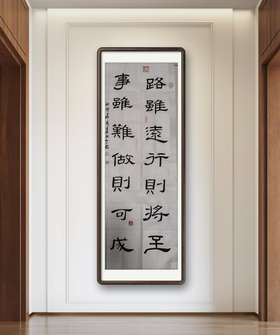 路雖遠行則將至
事雖難做則可成